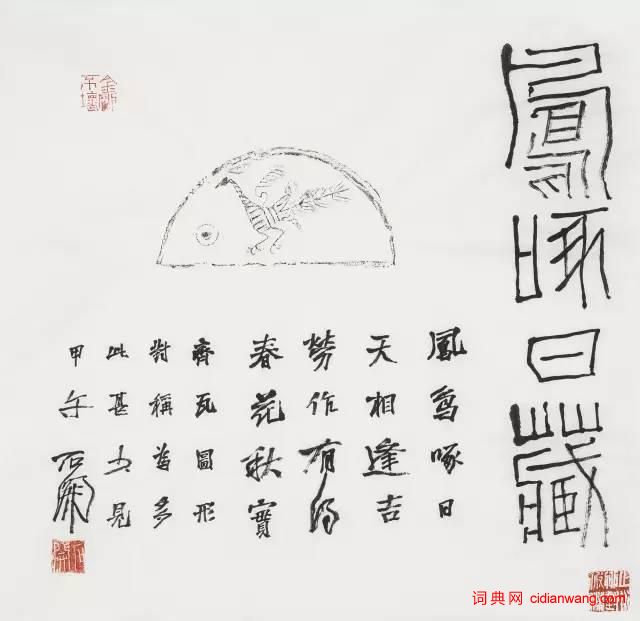 鳳啄日藏
鳳鳥啄日
天相逢吉
勞作有得
春花秋實
齊瓦圖形
對稱多
此甚少見
甲午石開
金剛不壞
石開
词典网 cidianwang.com